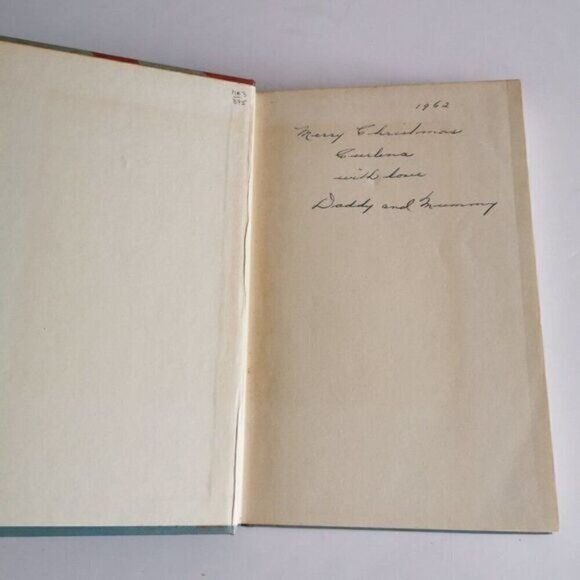 1962
Merry Christmas
with love
Daddy and Mummy